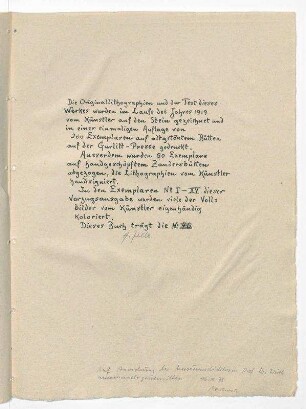 Die Originallithographien und der Text dieses
Werkes wurden im Laufe des Jahres 1919
vom Künstler auf den Stein gezeichnet und
in einer einmaligen Auflage von
200 Exemplaren auf altgetöntem Bütten
auf der Gurlitt-Presse gedruckt.
Ausserdem wurden 50 Exemplare
auf handgeschöpftem Zandersbütten
abgezogen, die Lithographien vom Künstler
handsigniert.
In den Exemplaren № I–XV dieser
Vorzugsausgabe wurden viele der Voll
bilder vom Künstler eigenhändig
koloriert.
Dieses Buch trägt die №
Auf